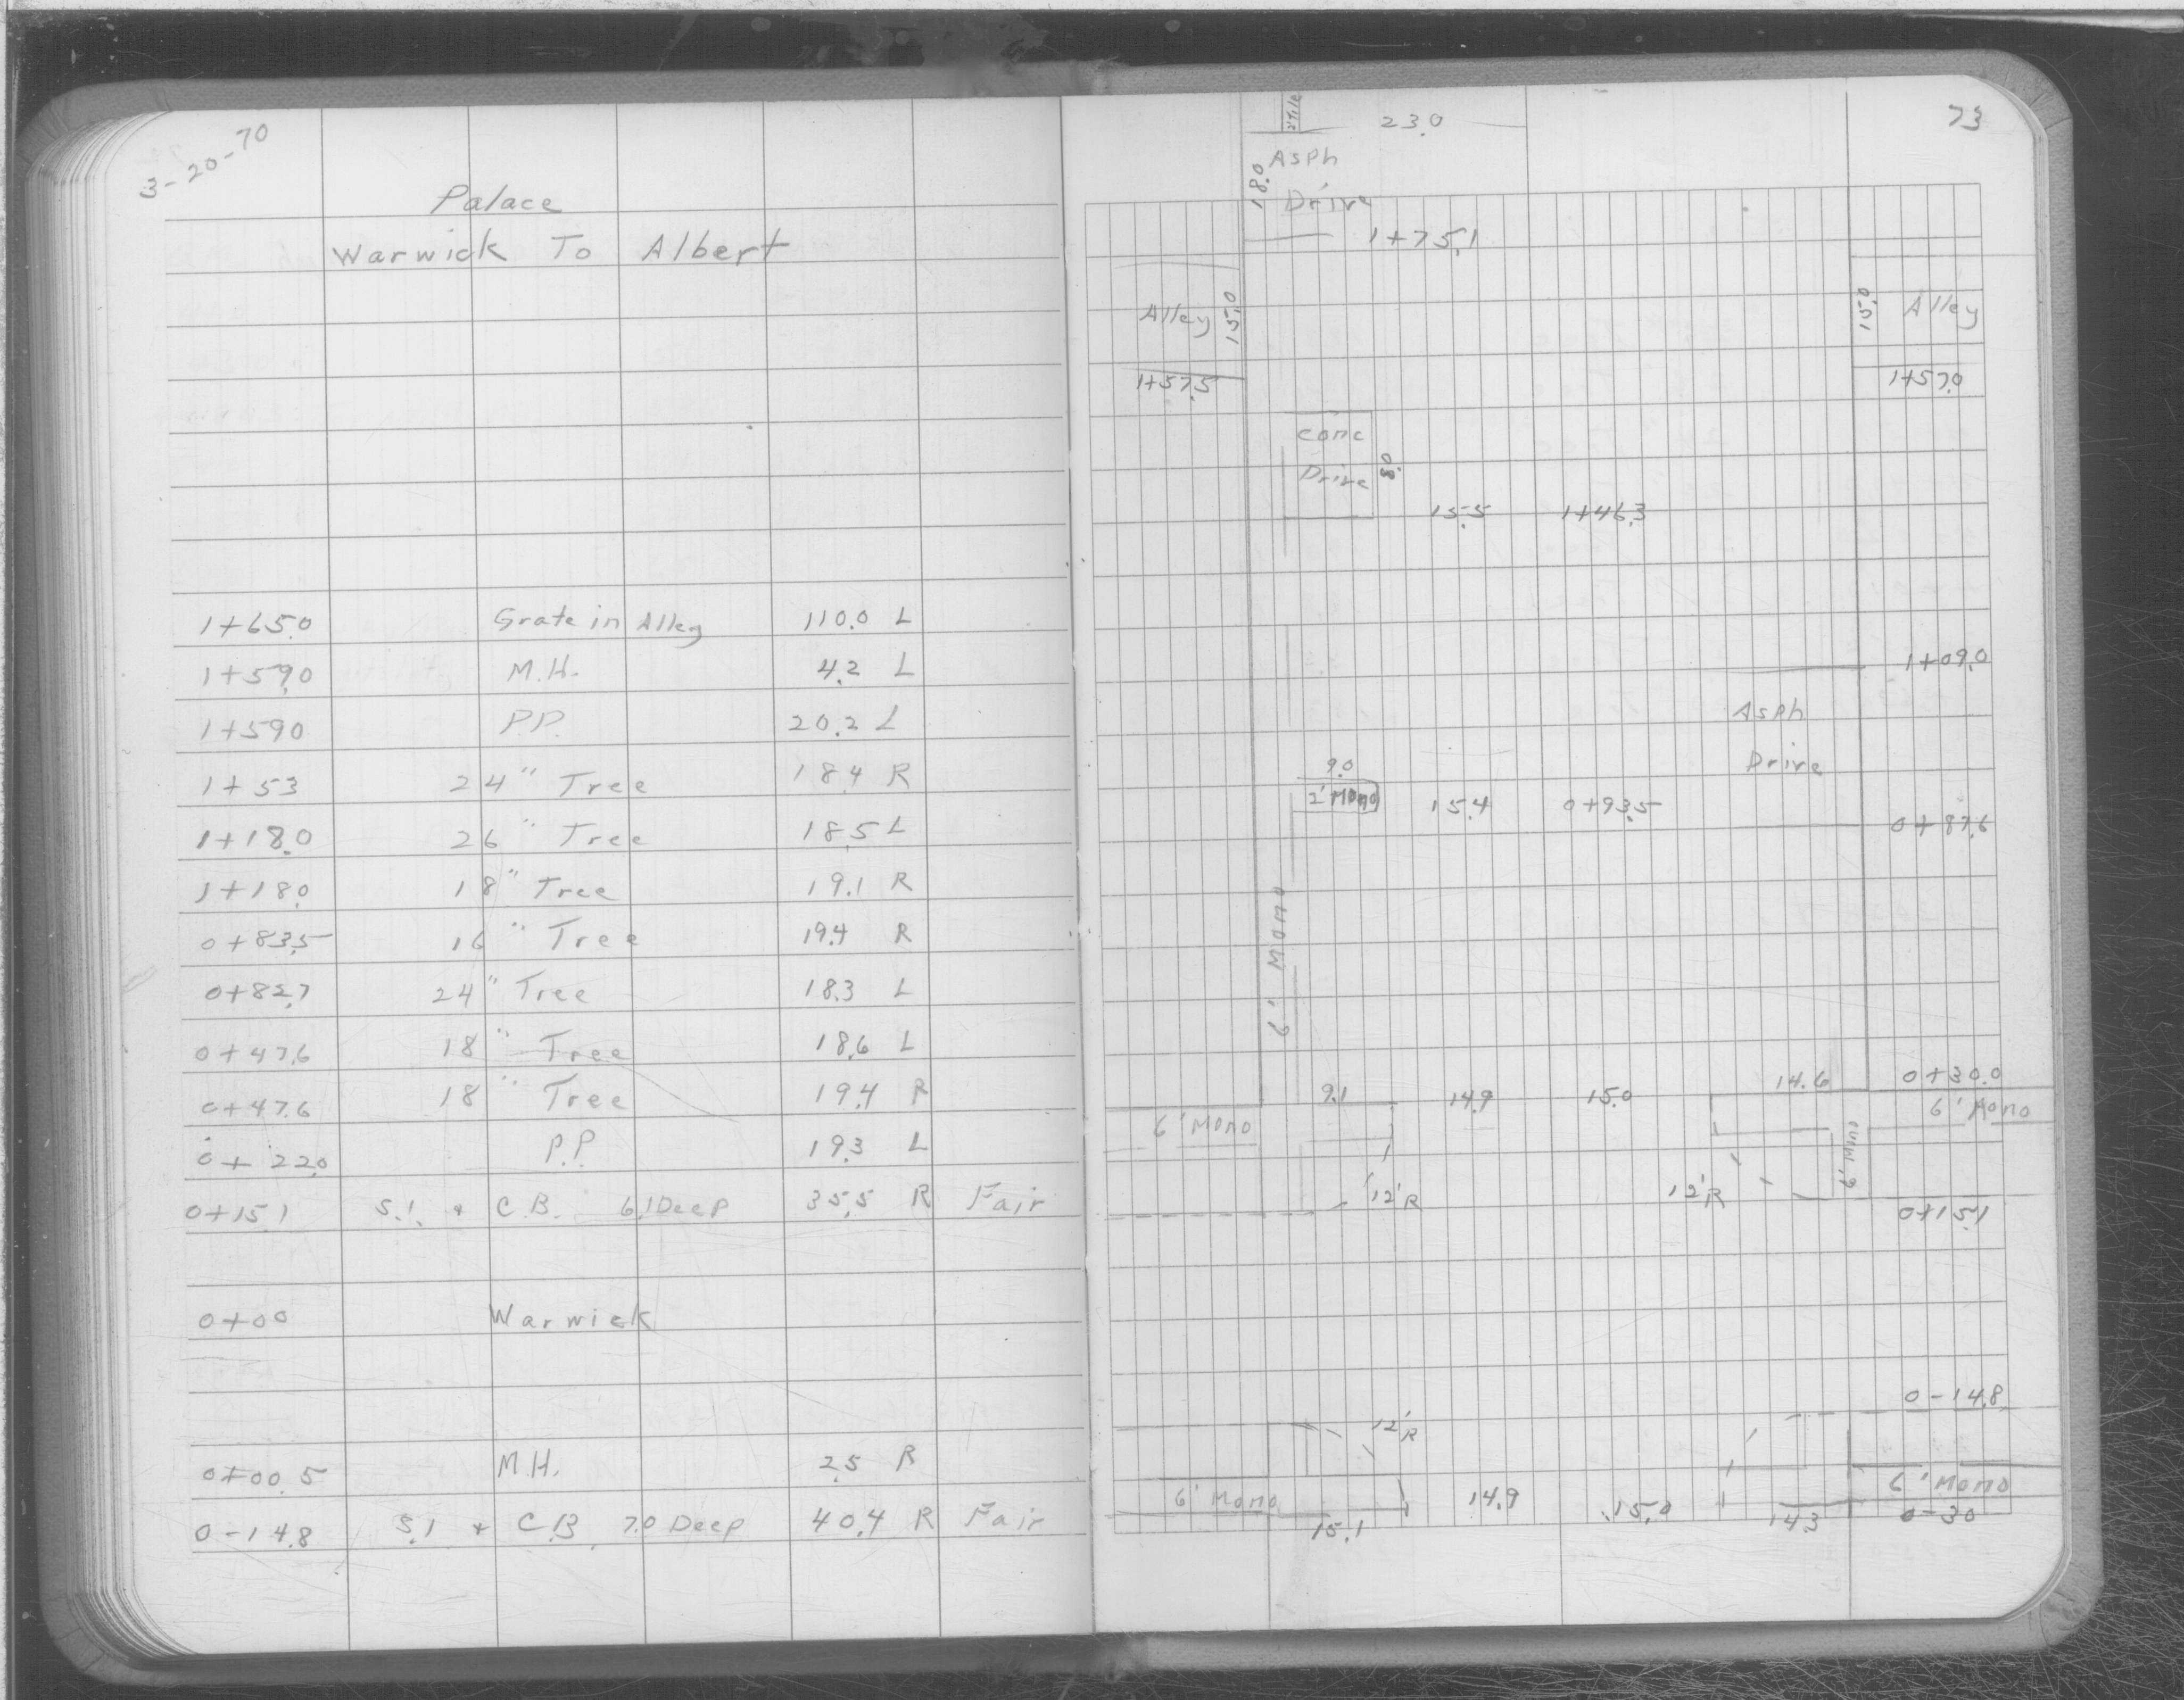 3-20-70
Palace
Warwick To Albert
1+65.0 Grate in Alley 110.0 L
1+59.0 M.H. 4.2 L
1+590 P.P. 20.2 L
1+53 24" Tree 18.4 R
1+18.0 26" Tree 18.5 L
1+18.0 18" Tree 19.1 R
0+83.5 16" Tree 19.4 R
0+82.7 24" Tree 18.3 L
0+47.6 18" Tree 18.6 L
0+47.6 18" Tree 19.4 R
0+22.0 P.P. 19.3 L
0+15.1 S.I. + C.B. 6.1 Deep 35.5 R Fair
0+00 Warwick
0+00.5 M.H. 2.5 R
0-14.8 S.I + C.B. 7.0 Deep 40.4 R Fair
73
2' Tile 23.0
18.0 Asph
Drive
1+75.1
Alley 15.0 15.0 Alley
1+57.5 1+57.0
conc
Drive 8.0
15.5 1+46.3
1+09.0
Asph
9.0 Drive
2' Mono 15.4 0+93.5
0+87.6
6' Mono
9.1 14.9 15.0 14.6 0+30.0
6' Mono 6' Mono
6' Mono
12'R 12'R
0+15.1
0-14.8
12'R
6' Mono 14.9 15.0 6' Mono
15.1 14.3 0-30